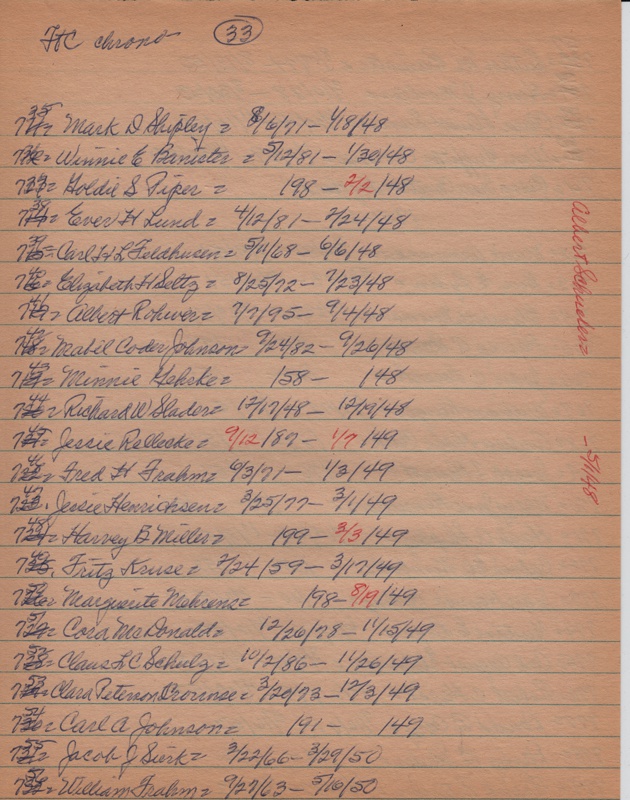 FHC chrono 33
735= Mark D Shipley = 8/6/71 – 4/18/48
736= Winnie E Banister = 5/12/81 – 1/30/48
737= Goldie S Piper = 198 – 2/2/48
738= Ever H Lund = 4/12/81 – 2/24/48
739= Carl H L Feldhusen = 5/11/68 – 6/6/48
740= Elizabeth H Seltz = 8/25/72 – 7/23/48
741= Albert Rohwer = 7/7/95 – 9/4/48
742= Mabel Coder Johnson = 9/24/82 – 9/26/48
743= Minnie Gehrke = 158 – 148
744= Richard W Slader = 12/17/48 – 12/19/48
745= Jessie Rellecke = 9/12/87 – 1/7/49
746= Fred H Frahm = 6/3/71 – 1/3/49
747. Jessie Henrichsen = 3/25/77 – 3/1/49
748= Harvey B Miller = 199 – 3/3/49
749. Fritz Kruse = 2/24/59 – 3/17/49
750= Marguerite Mehrens = 198 – 8/19/49
751= Cora McDonald = 12/26/78 – 11/15/49
752= Claus L C Schulz = 10/2/86 – 11/26/49
753= Clara Peterson = 3/20/73 – 12/3/49
754= Carl A Johnson = 191 – 149
755= Jacob J Sierk = 3/22/66 – 3/29/50
756= William Frahm = 9/27/63 – 5/16/50
Albert Schueler = – 5/1/48